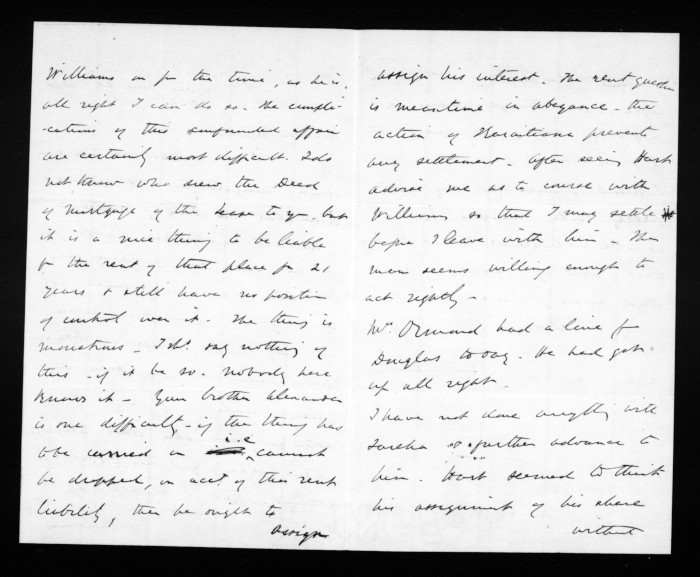 Williams on for the time, as he is,
all right I can do so. The compli-
-cations of this confounded affair
are certainly most difficult. I do
not know who drew the Deed
of Mortgage of the Lease to you, but
it is a nice thing to be liable
for the rent of that place for 21
years & still have no position
of control over it. The thing is
monstrous - I shd. say nothing of
this - if it be so. nobody here
knows it - Your brother Alexander
is one difficulty - if the thing has
to be carried on i.e. cannot
be dropped, on acct. of this rent
liability, then he ought to
assign
assign his interest. The rent question
is meantime in abeyance - the
action of Karaitiana prevents
any settlement. After seeing Hart
advise me as to course with
Williams so that I may settle
before I leave with him - The
man seems willing enough to
act rightly -
Mr. Ormond had a line fr
Douglas today. He had got
up all right.
I have not done anything with
Tareha so further advance to
him. Hart seemed to think
his assignment of his share
without